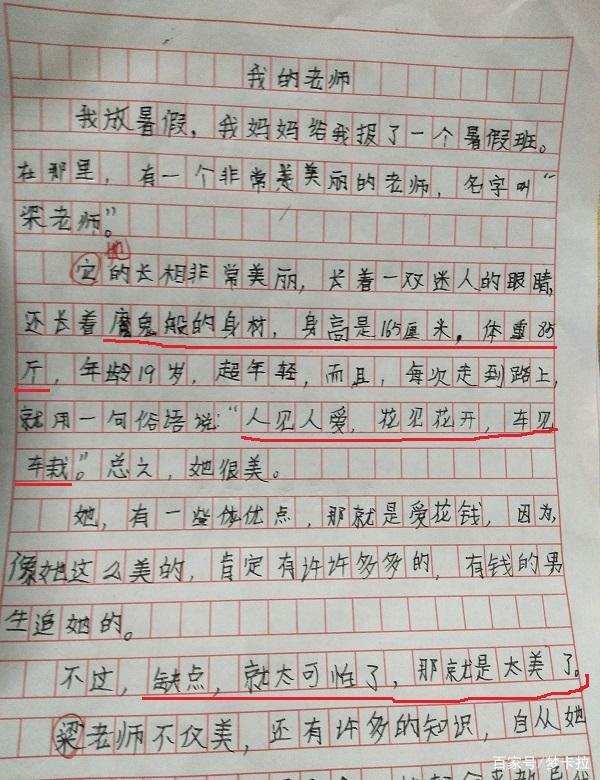 我的老师
我放暑假，我妈妈给我报了一个暑假班。
在那里，有一个非常美丽的老师，名字叫“
梁老师”。
她
它的长相非常美丽，长着一双迷人的眼睛，
还长着魔鬼般的身材，身高是165厘米，体重85
斤，年龄19岁，超年轻，而且，每次走到路上，
就用一句俗语说：“人见人爱，花见花开，车见
车栽”。总之，她很美。
她，有一些优点，那就是爱花钱，因为，
像她这么美的，肯定有许许多多的，有钱的男
生追她的。
不过，缺点，就太可惜了，那就是太美了。
梁老师不仅美，还有许多的知识，自从她
百家号/梦卡拉